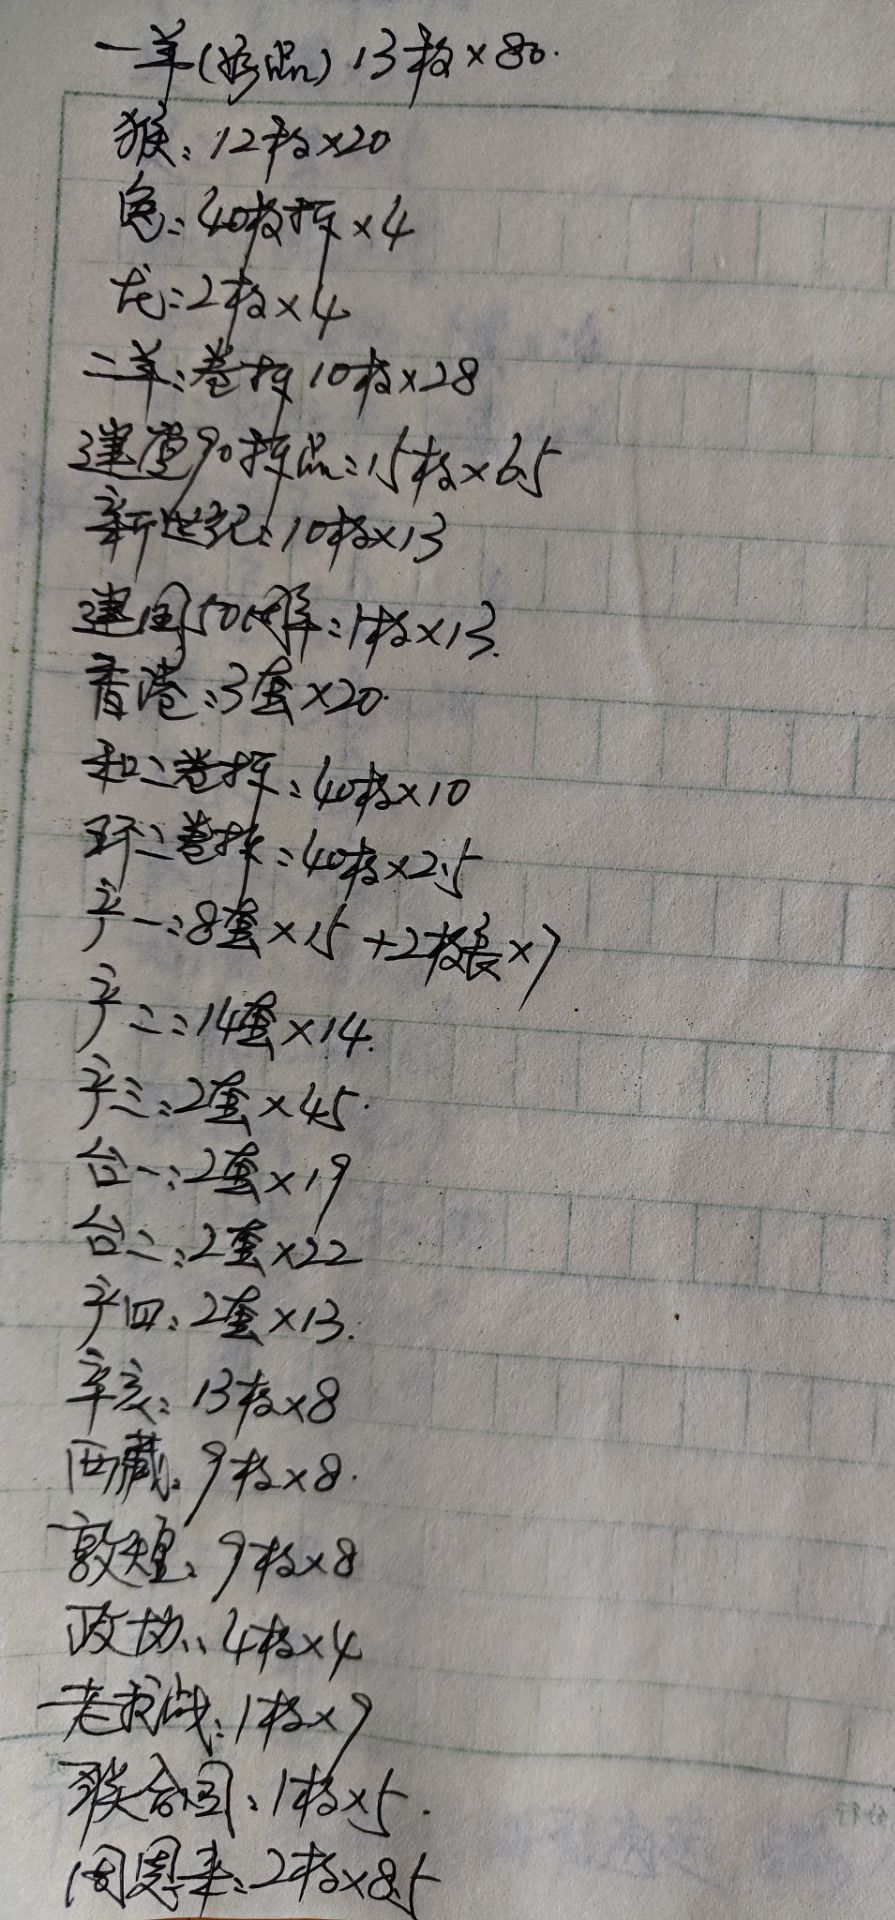 一羊(好品)13枚×80.
猴:12枚×20
兔:40枚拆×4
龙:2枚×4
二羊:卷拆10枚×28
建党90拆品:15枚×6.5
新世纪:10枚×13
建国50周年:1枚×13.
香港:3套×20.
和二卷拆:40枚×10
环二卷拆:40枚×2.5
字一:8套×15+2枚长×7
字二:14套×14.
字三:2套×45.
台一:2套×19
台二:2套×22
字四:2套×13.
辛亥:13枚×8
西藏:9枚×8.
敦煌:9枚×8
政协:4枚×4
老抗战:1枚×9
联合国:1枚×5.
周恩来:2枚×8.5